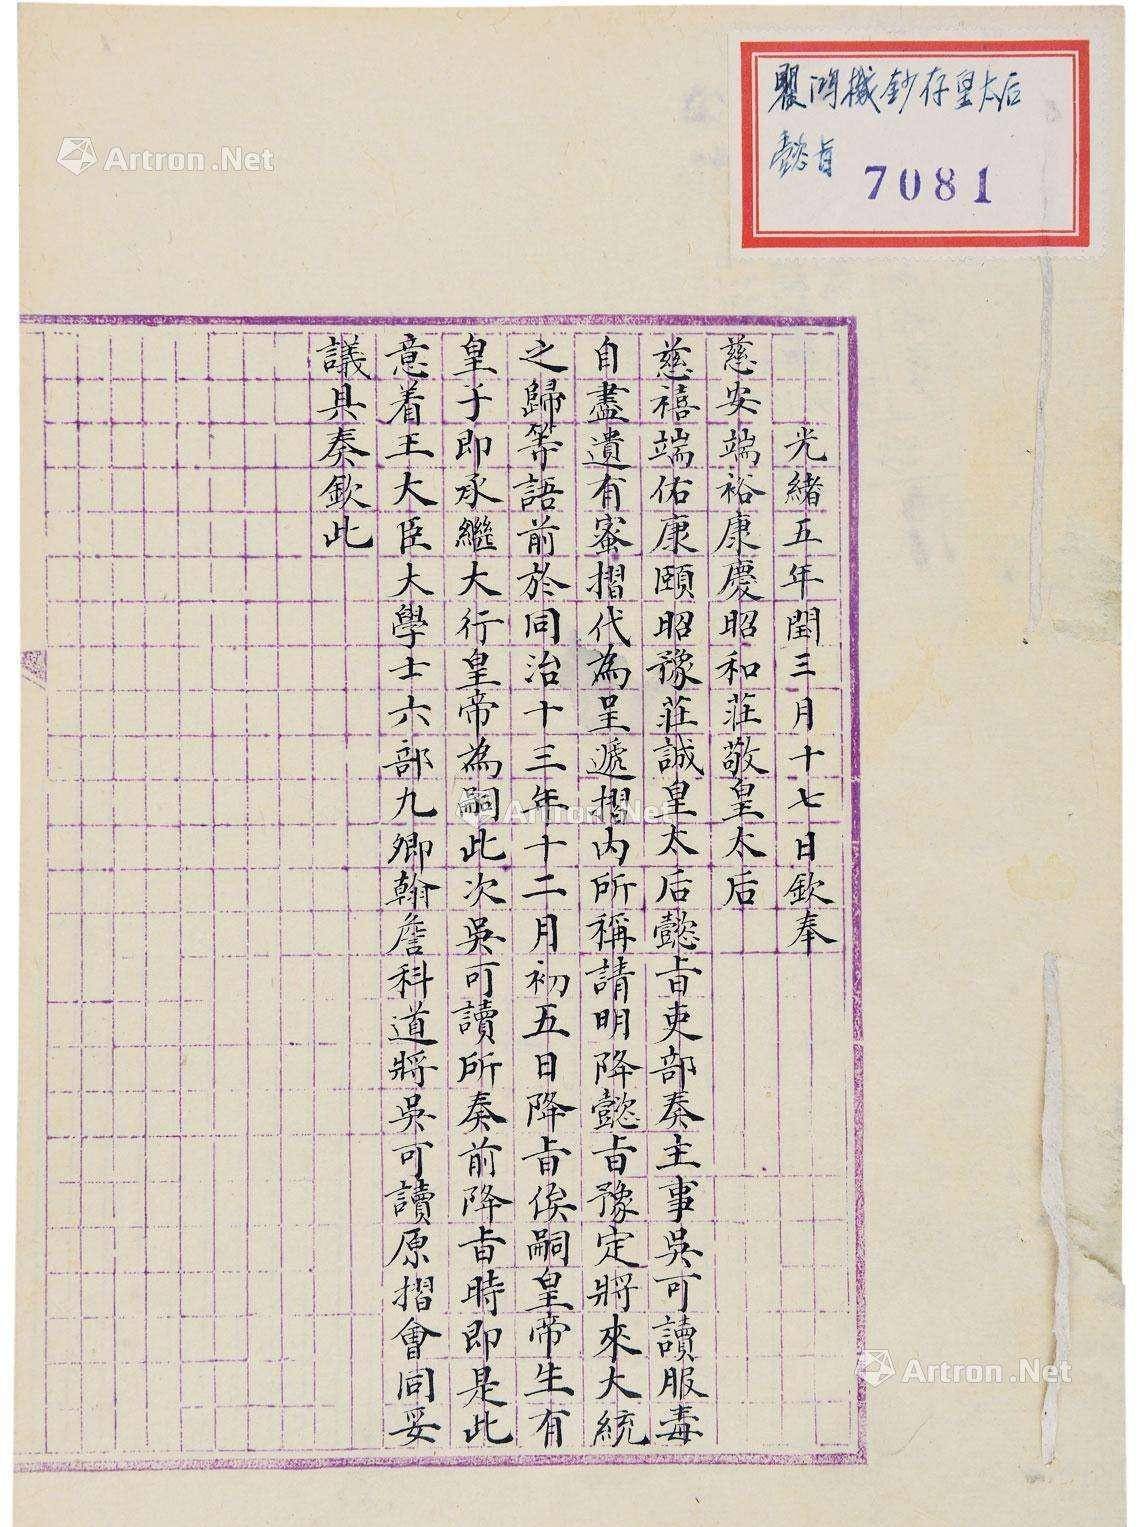 瞿鴻禨鈔存皇太后
懿旨
7081
光緒五年閏三月十七日欽奉
慈安端裕康慶昭和莊敬皇太后
慈禧端佑康頤昭豫莊誠皇太后懿旨吏部奏主事吳可讀服毒
自盡遺有蜜摺代為呈遞摺內所稱請明降懿旨豫定將來大統
之歸等語前於同治十三年十二月初五日降旨俟嗣皇帝生有
皇子即承繼大行皇帝為嗣此次吳可讀所奏前降旨時即是此
意着王大臣大學士六部九卿翰詹科道將吳可讀原摺會同妥
議具奏欽此
Artron.Net
Artron.Net
Artron.Net